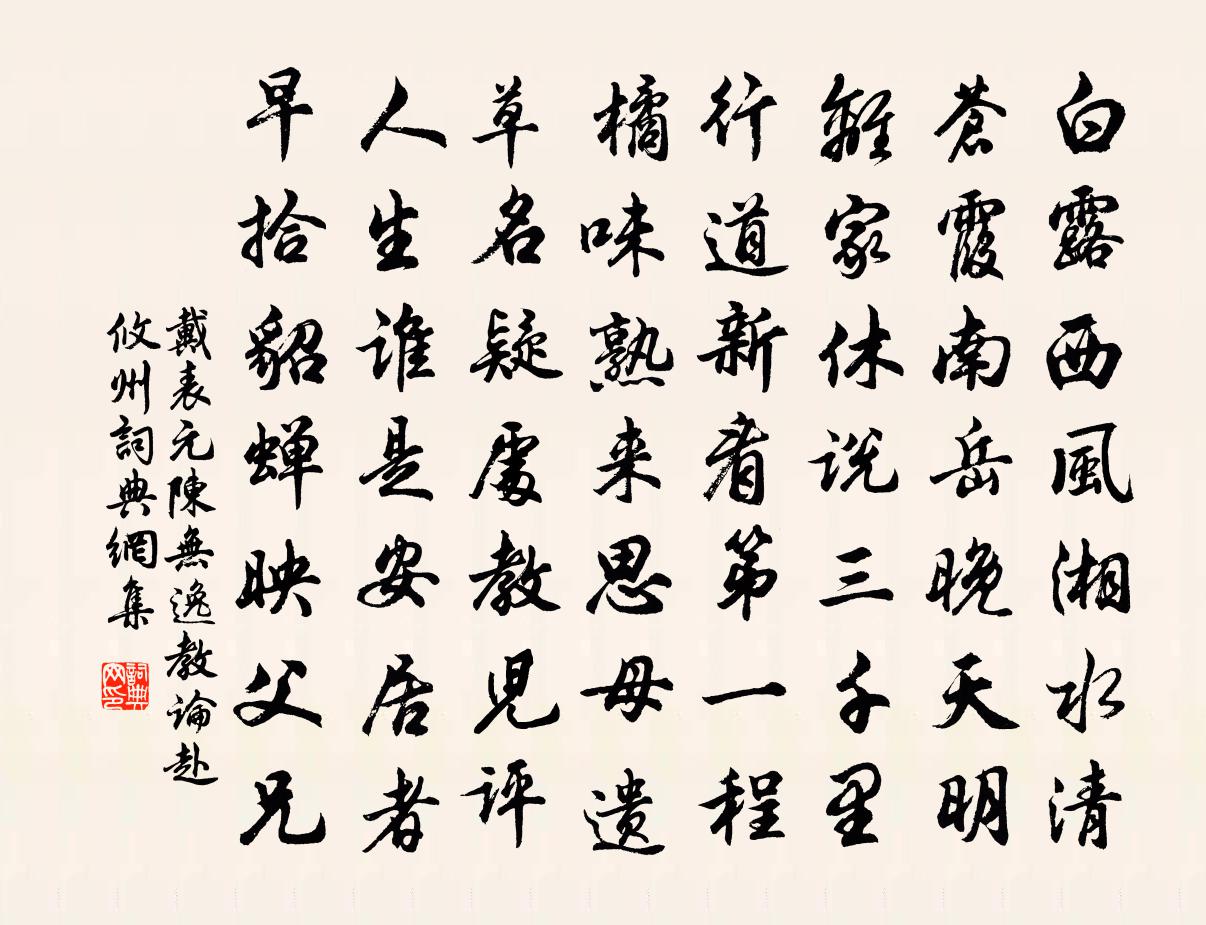 白露西風湘水清
蒼霞南岳晚天明
離家休説三千里
行道新看第一程
橘味熟来思母遺
草名疑處教児評
人生誰是安居者
早拾貂蝉映父兄
戴表元陳無逸教論赴
攸州詞典網集
詞典
网印